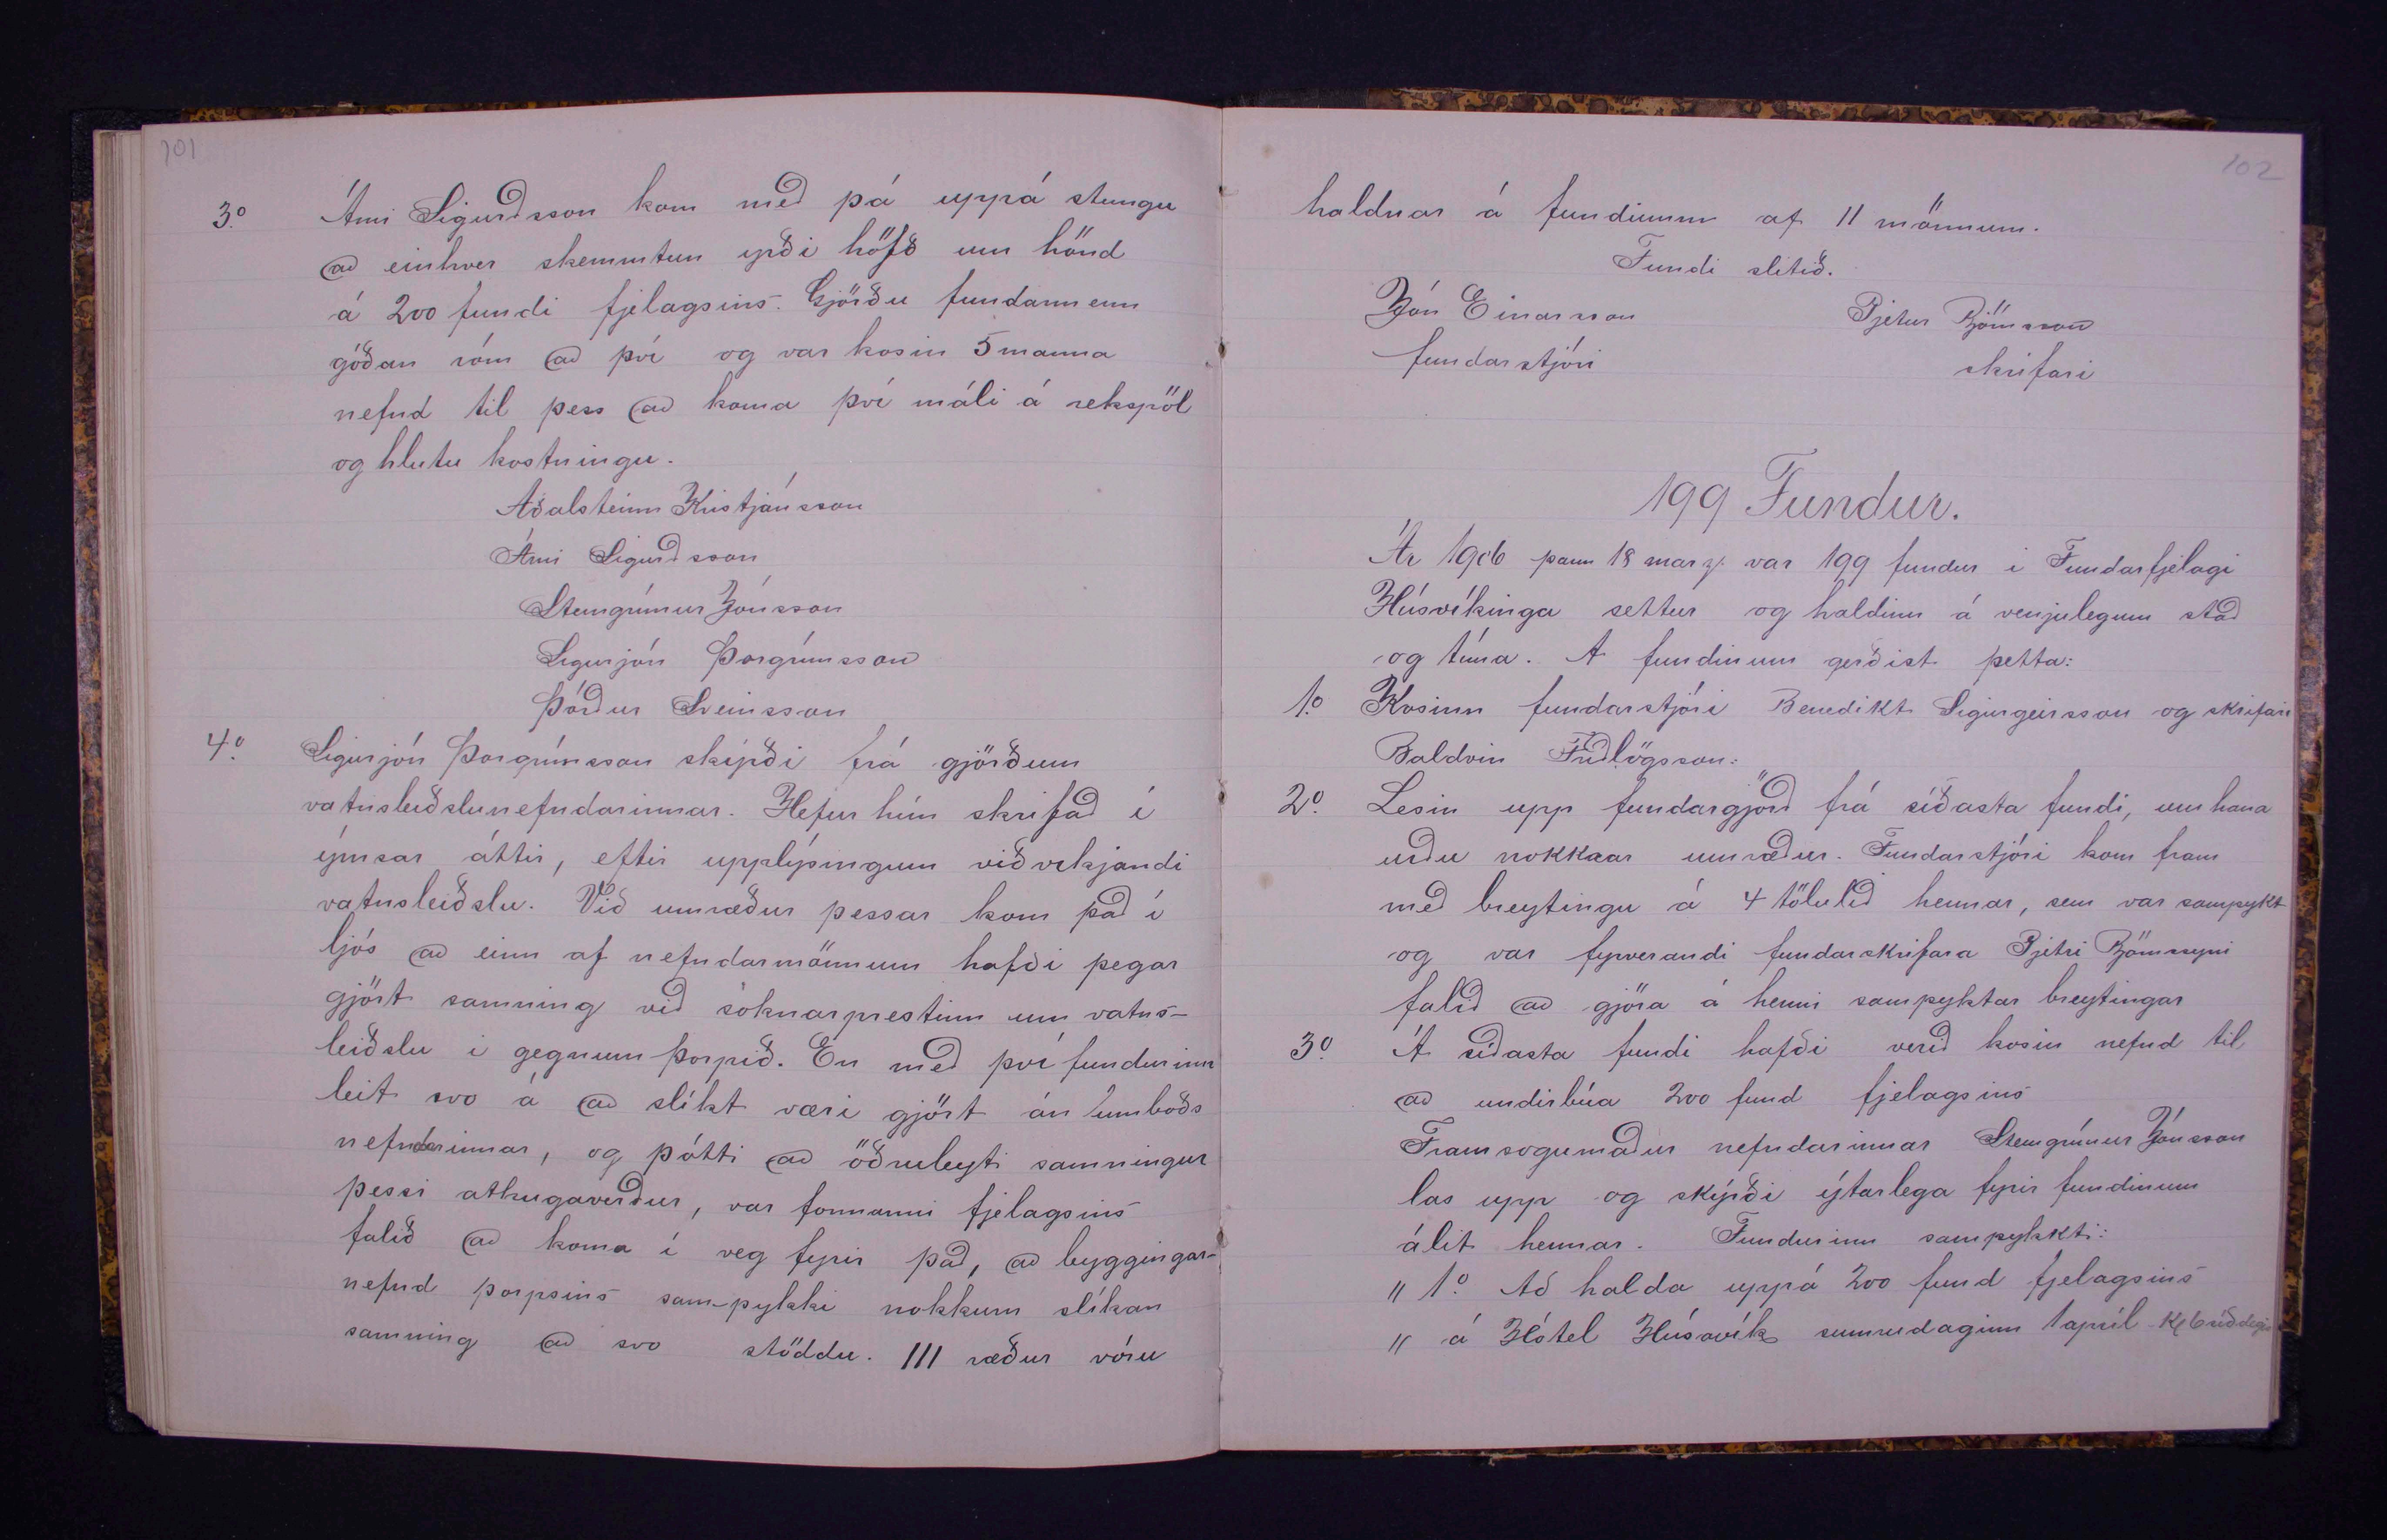 101
3.o Árni Sigurdsson kom med þá uppá stungu
að einhver skemmtun yrði höfð um hönd
á 200 fundi fjelagsins. Gjörðu fundarmenn
góðan róm að því og var kosin 5 manna
nefnd til þess að koma því máli á rekspöl
og hlutu kostningu.
Aðalsteinn Kristjánsson
Árni Sigurdsson
Steingrímur Jónsson
Sigurjón Þorgrímsson
Þórdur Sveinsson
4.o Sigurjón Þorgrímsson skýrði frá gjörðum
vatnsleiðslunefndarinnar. Hefur hún skrifad í
ýmsar áttir, eftir upplýsingum viðvíkjandi
vatnsleiðslu. Við umræður þessar kom það í
ljós að einn af nefndarmönnum hafði þegar
gjört samning við sóknarprestinn um vatns-
leiðslu i gegnum Þorpið. En með því fundurinn
leit svo á að slíkt væri gjört án umboðs
nefndarinnar, og þótti að öðruleyti samningur
þessi athugaverður, var formanni fjelagsins
falið að koma í veg fyrir það, að byggingar-
nefnd þorpsins samþykki nokkurn slíkan
samning að svo stöddu. 111 ræður vóru
102
haldnar á fundinum af 11 mönnum.
Fundi slitið.
Jón Einarsson Pjetur Björnsson
fundarstjóri skrifari
199 Fundur.
Ár 1906 þann 18 marz. var 199 fundur i Fundarfjelagi
Húsvíkinga settur og haldinn á venjulegum stað
og tíma. Á fundinum gerðist þetta:
1.o Kosinn fundarstjóri Benedikt Sigurgeirsson og skrifari
Baldvin Fridlögsson:
2.o Lesin upp fundargjörð frá síðasta fundi, um hana
urdu nokkrar umrædur. Fundarstjóri kom fram
með breytingu á 4 tölulið hennar, sem var samþykt
og var fyrverandi fundarskrifara Pjetri Björnssyni
falið að gjöra á henni samþyktar breytingar
3.o Á síðasta fundi hafði verið kosin nefnd til
að undirbúa 200 fund fjelagsins
Framsogumadur nefndarinnar Steingrímur Jónsson
las upp og skýrði ýtarlega fyrir fundinum
álit hennar. Fundurinn samþykkti:
" 1.o Að halda uppá 200 fund fjelagsins
" á Hótel Húsavík sunnudaginn 1 apríl kl 6 síðdegis